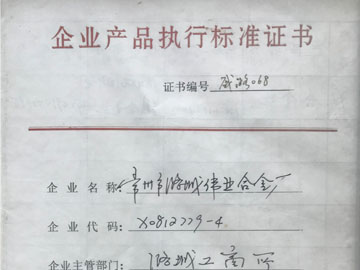 企业产品执行标准证书
证书编号 威潞068
企业名称:常州市潞城伟业合金厂
企业代码:X0812779-4
企业主管部门:潞城工商所